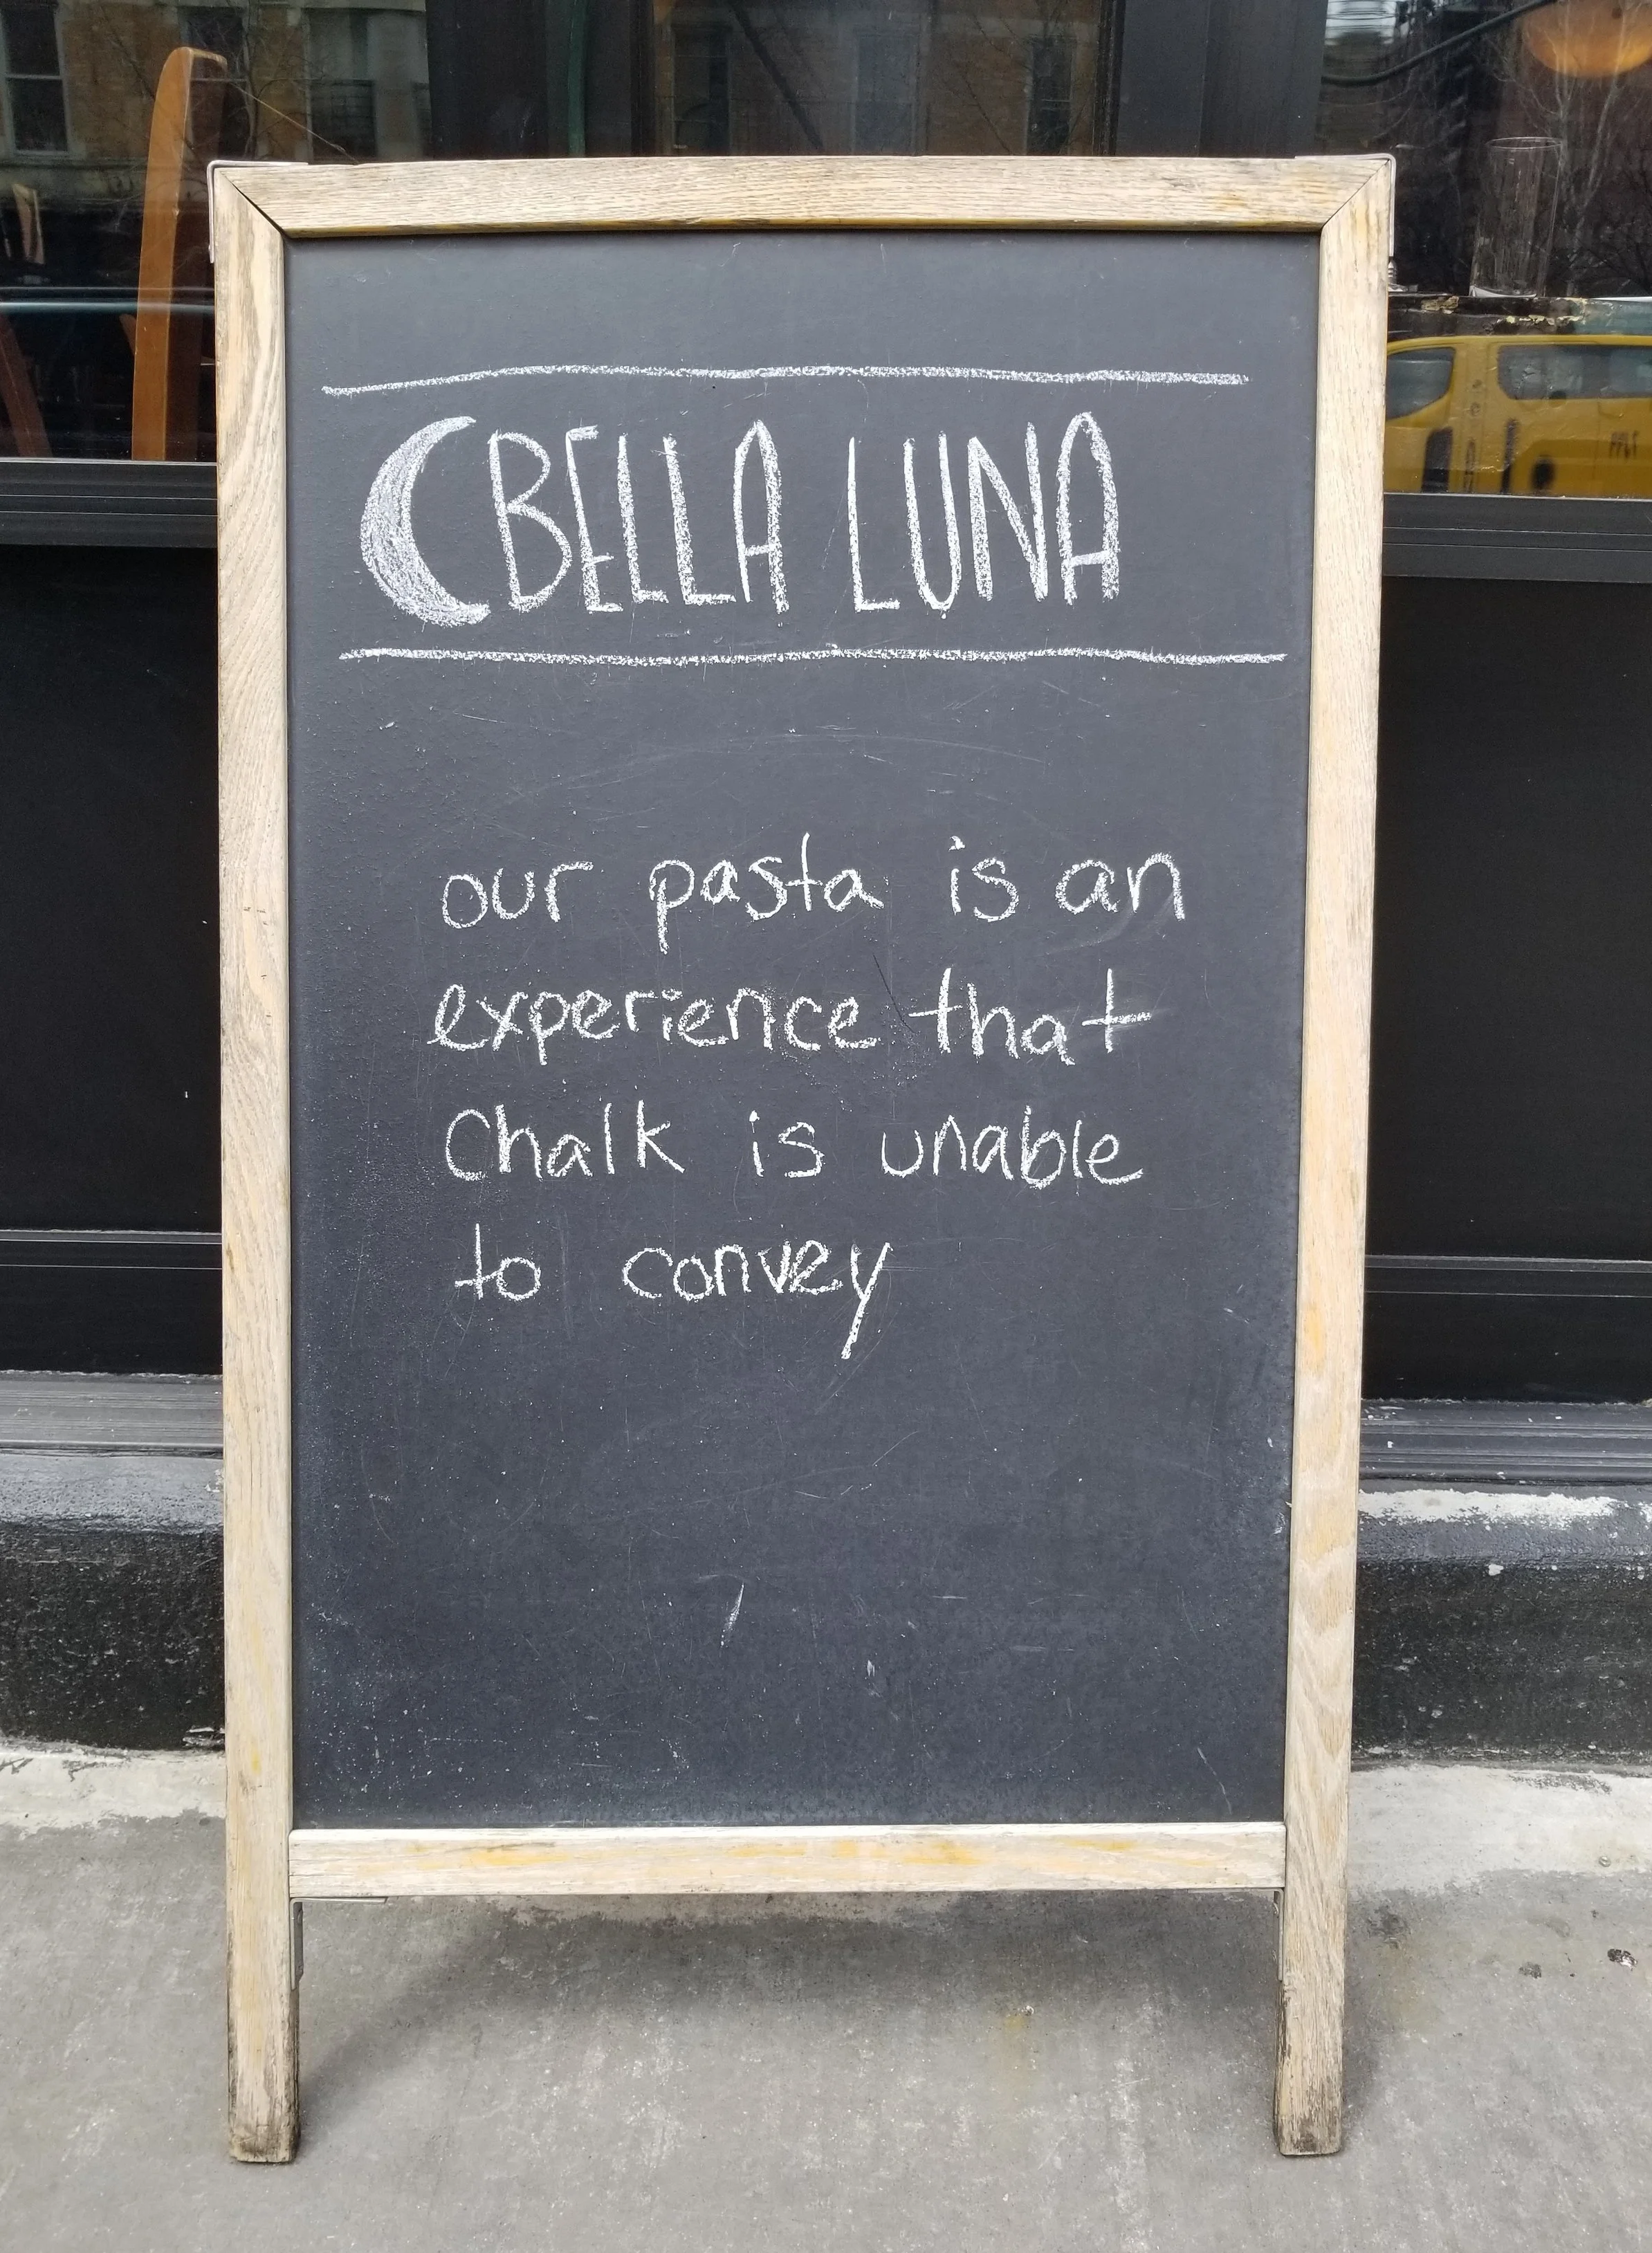 BELLA LUNA
our pasta is an
experience that
Chalk is unable
to convey